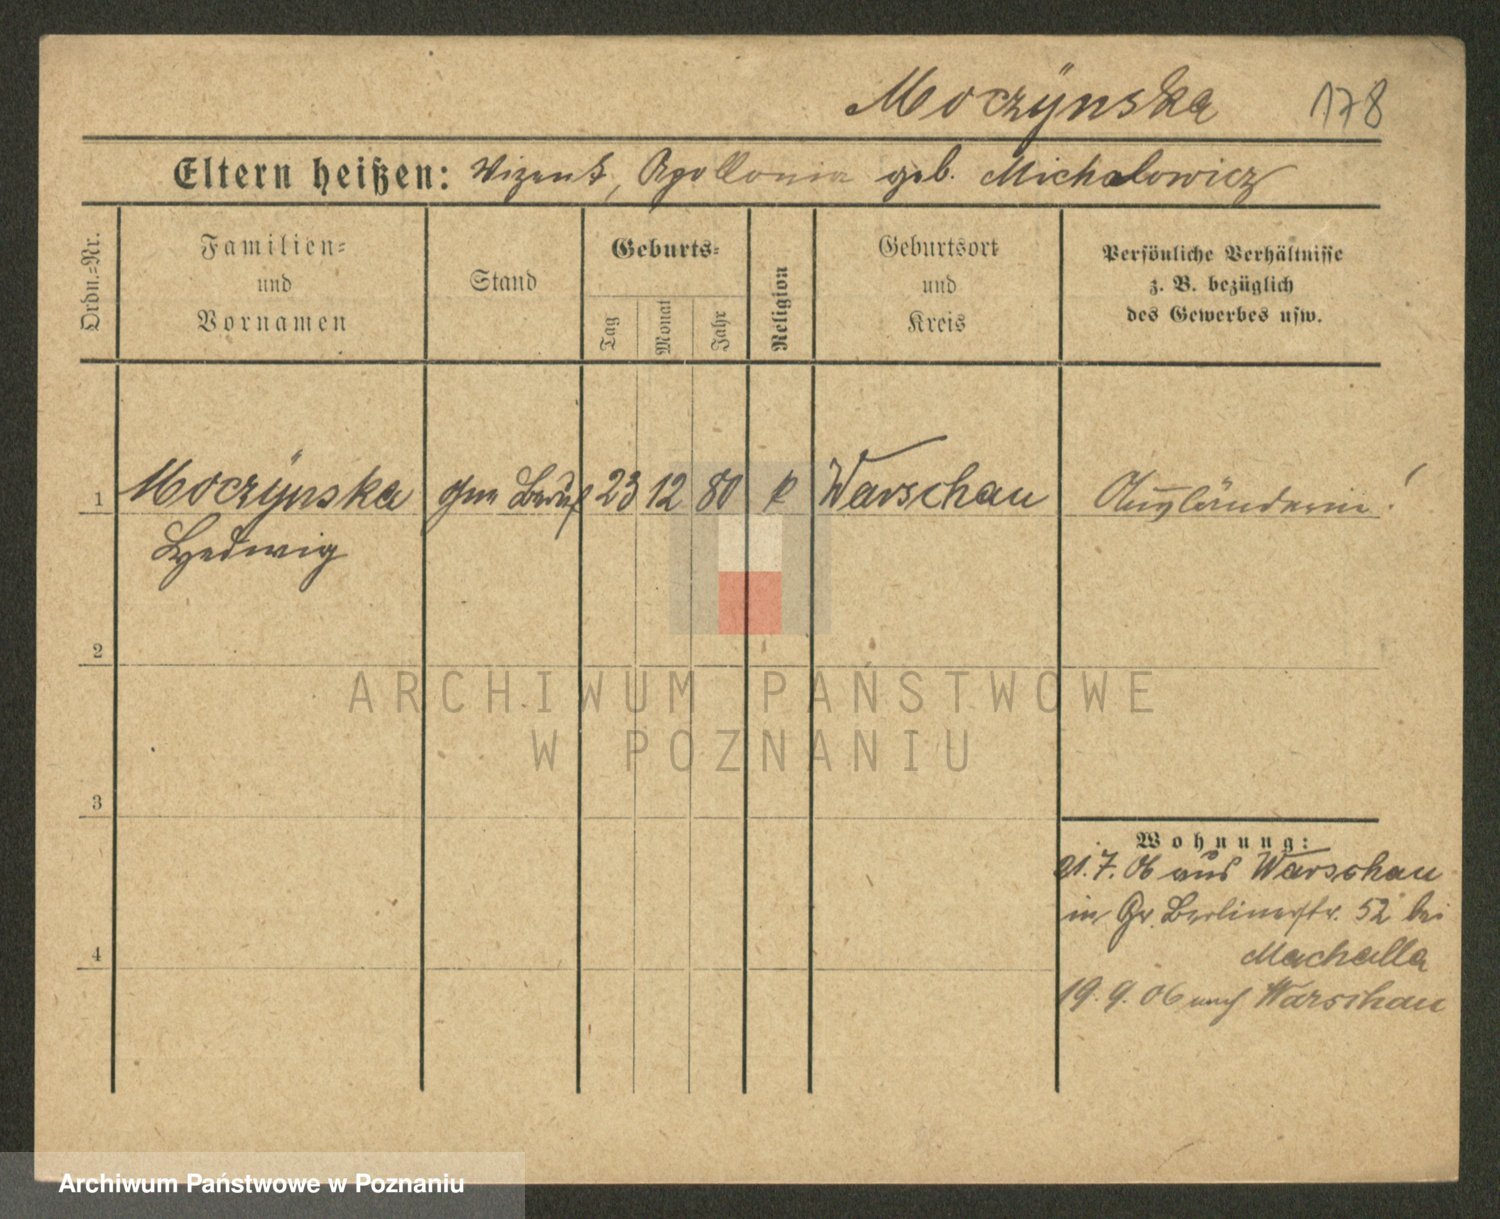 Moczÿnska 178
Eltern heißen: Vizent, Apollonia geb. Michalowicz
Ordn.=Nr.
Familien=
und
Vornamen
Stand
Geburts=
Tag
Monat
Jahr
Religion
Geburtsort
und
Kreis
Persönliche Verhältnisse
z. B. bezüglich
des Gewerbes usw.
1 Moczÿnska ohne Beruf 23 12 80 k Warschau Ausländerin!
Hedwig
2
3
4
Wohnung:
21.7.06 aus Warschau
in Gr. Berlinerstr. 52 bei
Machalla
19.9.06 nach Warschau
ARCHIWUM PAŃSTWOWE
W POZNANIU
Archiwum Państwowe w Poznaniu